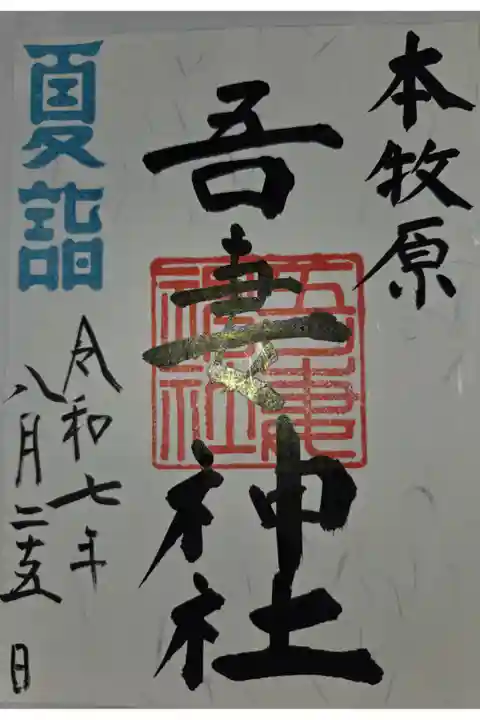 本牧原
吾妻神社
吾妻神社
夏詣
令和七年
八月二十五日